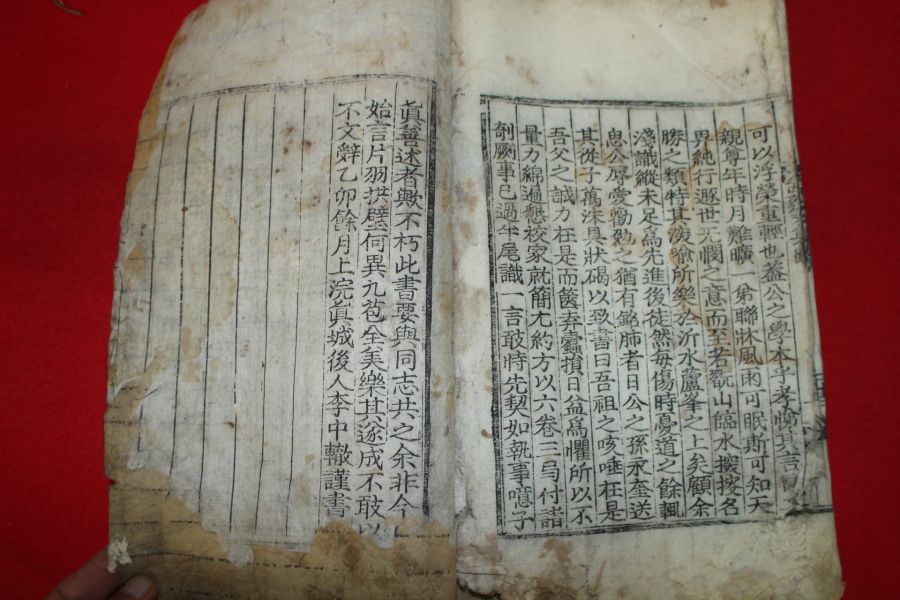 可以浮榮重輕也蓋公之學本乎孝悌其言
親尊年時月難曠一弟聯牀風雨可眠斯可知天
界純行遯世无憫之意而至若觀山臨水援援名
勝之類特其後喩所樂於沂水蘆峯之上矣顧余
淺識縱未足爲先進後徒然每傷時憂道之餘輒
息公辱愛勸勉之猶有銘肺者日公之孫永奎送
其從子萬洙具狀碣以致書曰吾祖之咳唾在是
吾父之誠力在是而篋弆蠹損日益爲懼所以不
量力綿遍懇校家就簡尤約方以六卷三局付諸
剞劂事已過半尾識一言敢恃先契如執事噫子
眞善述者歟不朽此書要與同志共之余非今
始言片羽拱璧何異九苞全美樂其遂成不敢以
不文辭乙卯餘月上浣眞城後人李中轍謹書